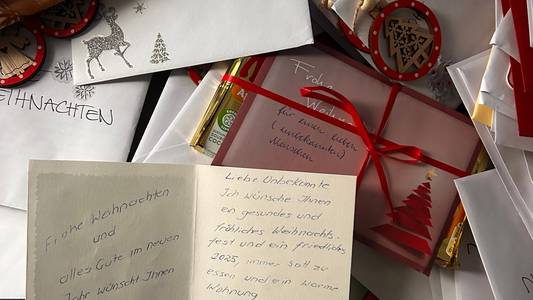 EIHNACHTEN
Frohe
Weihn
für einen lieben
(unbekannten)
Menschen
Frohe Weihnachten
und
alles Gute im neuen
Jahr wünscht Ihnen
Liebe Unbekannte
Ich wünsche Ihnen
ein gesundes und
fröhliches Weihnachts-
fest und ein friedliches
2025, immer satt zu
essen und ein warme
Wohnung